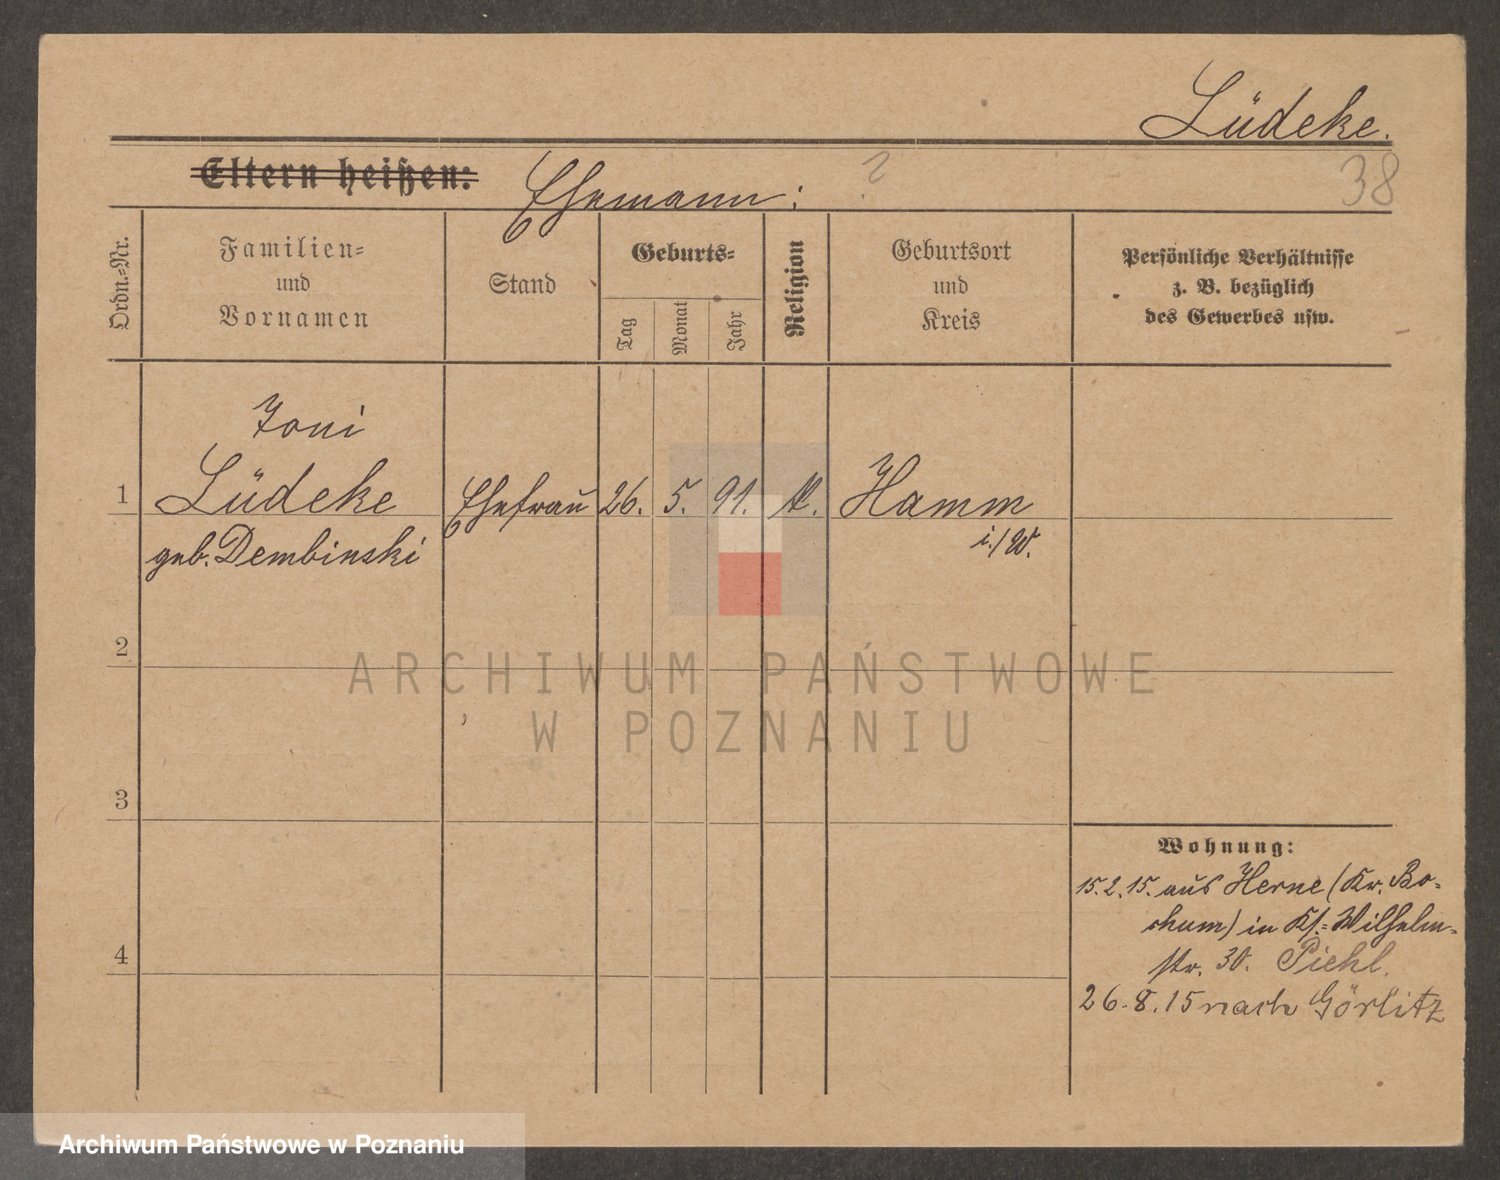 Lüdeke.
38
Eltern heißen: Ehemann: ?
Ordn.-Nr.
Familien-
und
Vornamen
Stand
Geburts-
Tag
Monat
Jahr
Religion
Geburtsort
und
Kreis
Persönliche Verhältnisse
z. B. bezüglich
des Gewerbes usw.
Toni
1 Lüdeke Ehefrau 26. 5. 91. Hamm
geb. Dembinski i./W.
2
3
4
Wohnung:
15.2.15. aus Herne (Kr. Bo-
chum) in Kl.-Wilhelm-
str. 30. Piehl.
26.8.15 nach Görlitz
ARCHIWUM PAŃSTWOWE
W POZNANIU
Archiwum Państwowe w Poznaniu